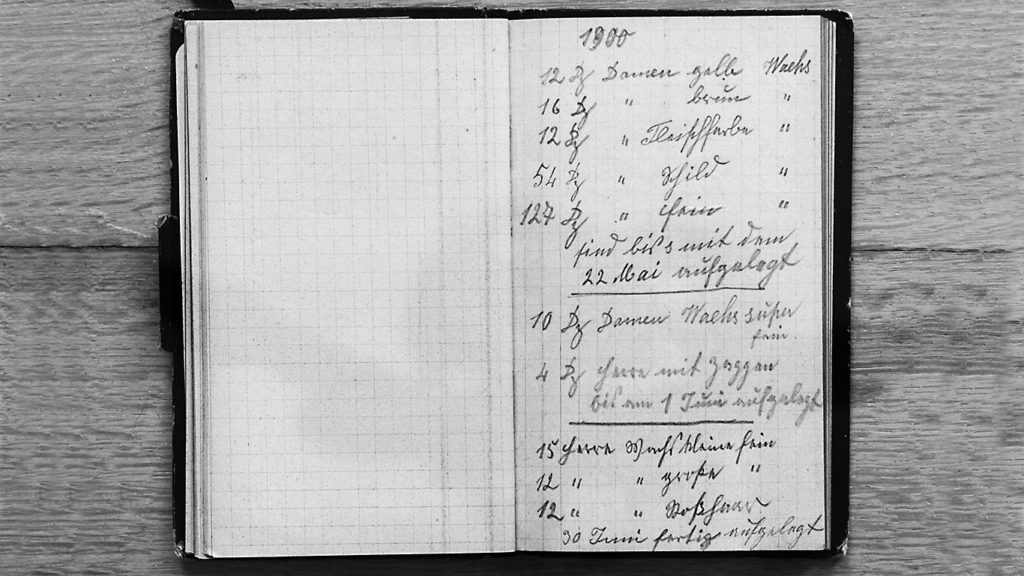 1900
12 Dz Damen gelb Wachs
16 Dz " brun "
12 Dz " Fleischfarbe "
54 Dz " Schild "
127 Dz " fein "
sind bis mit dem
22 Mai aufgelegt
10 Dz Damen Wachs super
fein.
4 Dz Herre mit Zaggen
bis am 1 Juni aufgelegt
15 Herre Wachs kleine fein
12 " " große "
12 " " Roßhaar
30 Juni fertig aufgelegt